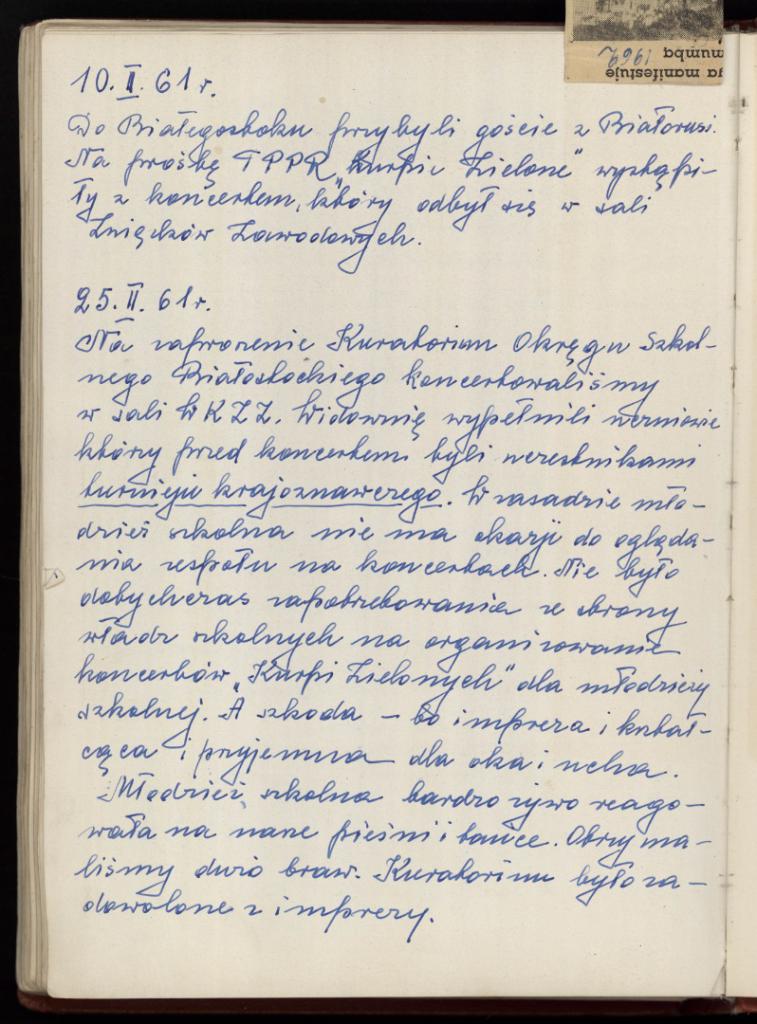 ga manifestuje
mumbą
1962
10. II. 61 r.
Do Białegostoku przybyli goście z Białorusi.
Na prośbę TPPR „Kurpie Zielone" wystąpi-
ły z koncertem, który odbył się w sali
Związków Zawodowych.
25. II. 61 r.
Na zaproszenie Kuratorium Okręgu Szkol-
nego Białostockiego koncertowaliśmy
w sali WKZZ. Widownię wypełnili uczniowie
którzy przed koncertem byli uczestnikami
turnieju krajoznawczego. W zasadzie mło-
dzież szkolna nie ma okazji do ogląda-
nia zespołu na koncertach. Nie było
dotychczas zapotrzebowania ze strony
władz szkolnych na organizowanie
koncertów „Kurpi Zielonych" dla młodzieży
szkolnej. A szkoda – bo impreza i kształ-
cąca i przyjemna dla oka i ucha.
Młodzież szkolna bardzo żywo reago-
wała na nasze pieśni i tańce. Otrzyma-
liśmy dużo braw. Kuratorium było za-
dowolone z imprezy.